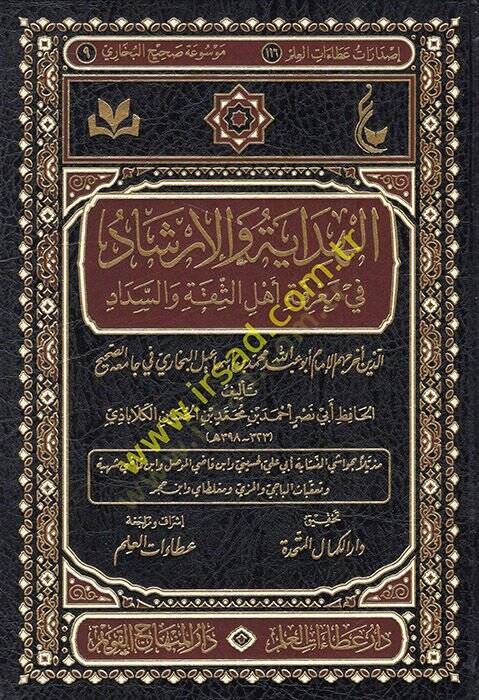 إصدارات عطاءات العلم (١١٦)
موسوعة صحيح البخاري (٩)
الهداية والإرشاد
في معرفة أهل الثقة والسداد
الذين أخرج لهم الإمام أبو عبد الله محمد بن إسماعيل البخاري في جامعه الصحيح
تأليف
الحافظ أبي نصر أحمد بن محمد بن الحسين الكلاباذي
(٣٢٣ - ٣٩٨هـ)
مذيلا بحواشي الغسانية أبي علي الحسيني وابن قاضي الموصل وابن قاضي شهبة
وتعقبات الباجي والمزي ومغلطاي وابن حجر
تحقيق
دار الكمال المتحدة
إشراف ومراجعة
عطاءات العلم
دار عطاءات العلم
دار المنهاج القويم
www.irsad.com.tr